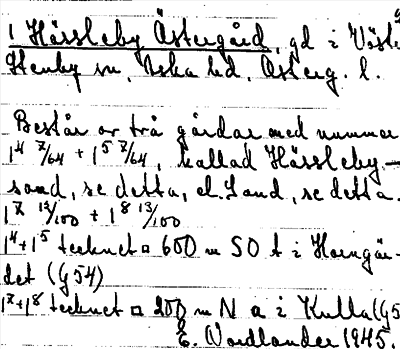 1 Hässleby Östergård, gd i Väst
Stenby sn, Aska hd, Österg. l.
Består av två gårdar med nummer
1⁴ 7/64 + 1⁵ 7/64, kallad Hässleby-
sand, se detta, el. Sand, se detta.
1⁷ 13/100 + 1⁸ 13/100
1⁴+1⁵ tecknet □ 600 m SO t i Horngär-
det (G54)
1⁷+1⁸ tecknet □ 200 m N a i Kulla (G5
E. Nordlander 1945.